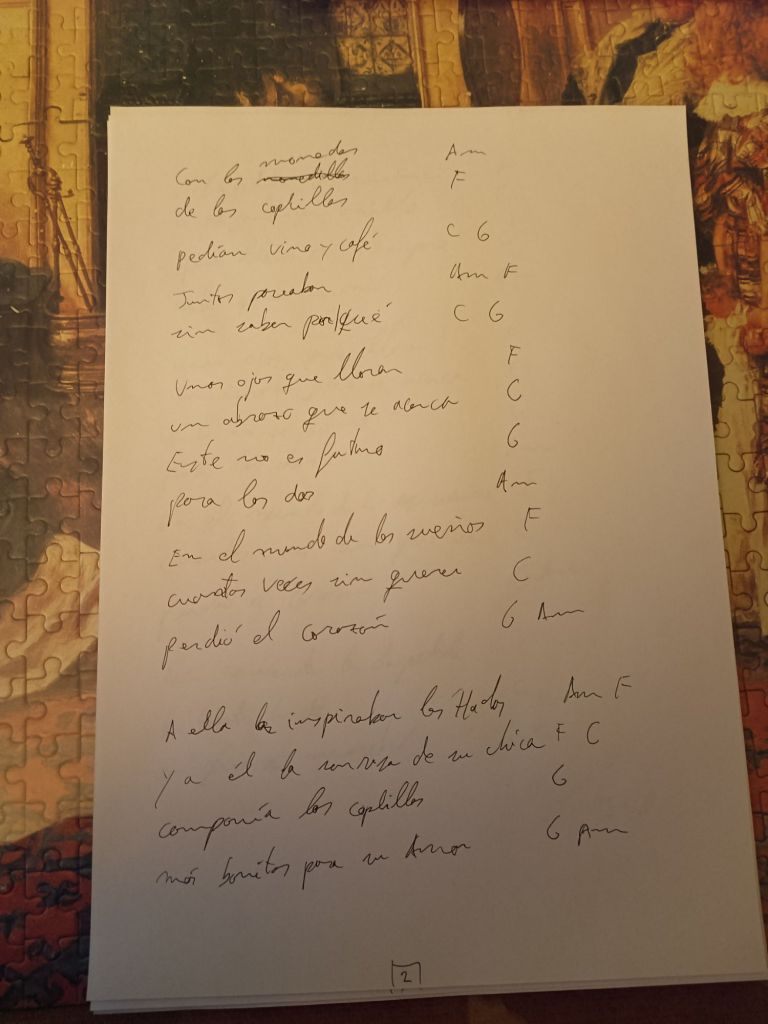 monedas Am
Con las monedillas F
de las coplillas
pedían vino y café C G
Juntos paseaban Am F
sin saber por qué C G
Unos ojos que lloran F
un abrazo que se acerca C
Este no es futuro G
para los dos Am
En el mundo de los sueños F
cuantas veces sin querer C
perdió el corazón G Am
A ella la inspiraban las Hadas Am F
y a él la sonrisa de su chica F C
componía las coplillas G
más bonitas para su Amor G Am
2